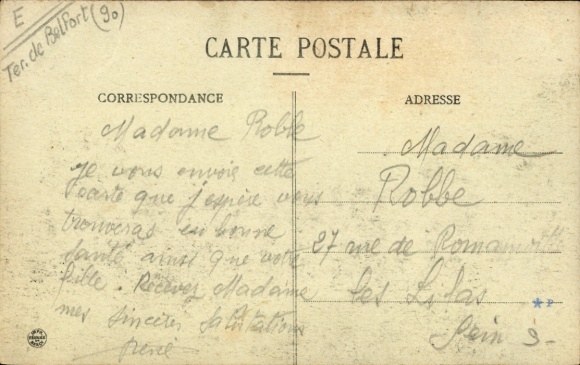 E
Ter. de Belfort (90)
CARTE POSTALE
CORRESPONDANCE
Madame Robbe
Je vous envoie cette
carte que j'espère vous
trouveras en bonne
santé ainsi que votre
fille. Recevez Madame
mes sincères salutations
ADRESSE
Madame
Robbe
27 rue de Romainville
les Lilas
Seine